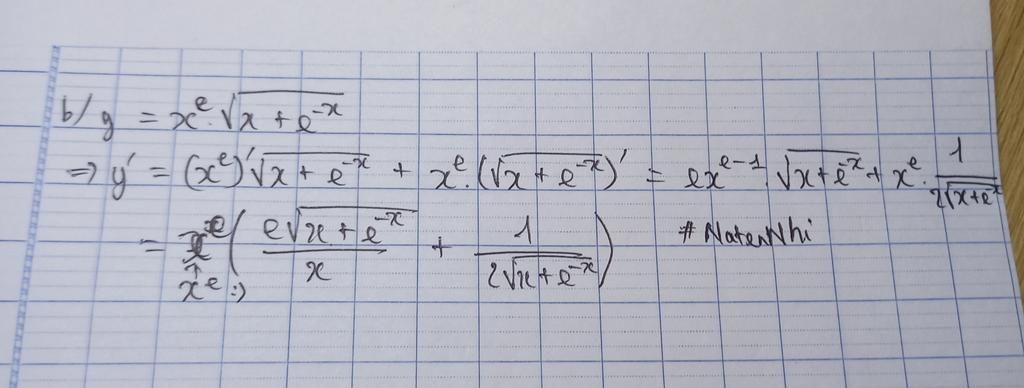 b/ y = x^e.√(x + e^-x)
=> y' = (x^e)'√(x + e^-x) + x^e.(√(x + e^-x))' = ex^(e-1) √(x+e^-x) + x^e. 1/(2√(x+e^-x))
= x^e( e√(x+e^-x)/x + 1/(2√(x+e^-x)) ) #NatenNhi
↑
x^e :)